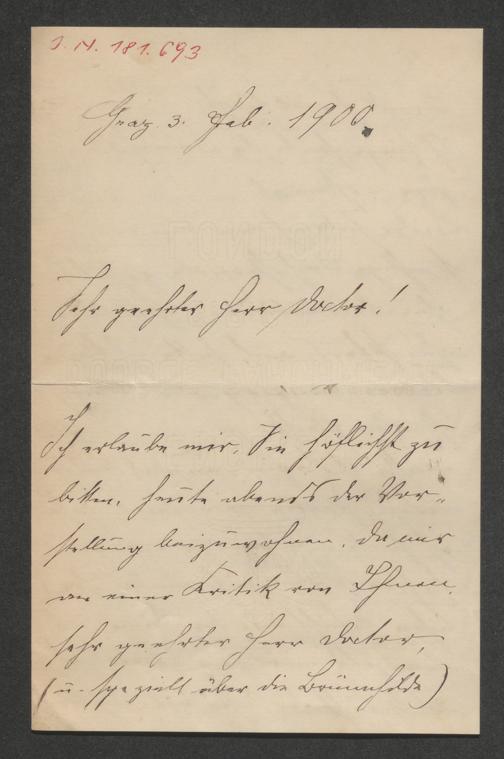 J. N. 181.693
Graz 3. Feb. 1900.
LONDON
Sehr geehrter Herr Doctor!
Ich erlaube mir, Sie höflichst zu
bitten, heute abends der Vor-
stellung beizuwohnen, da mir
an einer Kritik von Ihnen,
sehr geehrter Herr Doctor,
(u. speziell über die Brünnhilde)